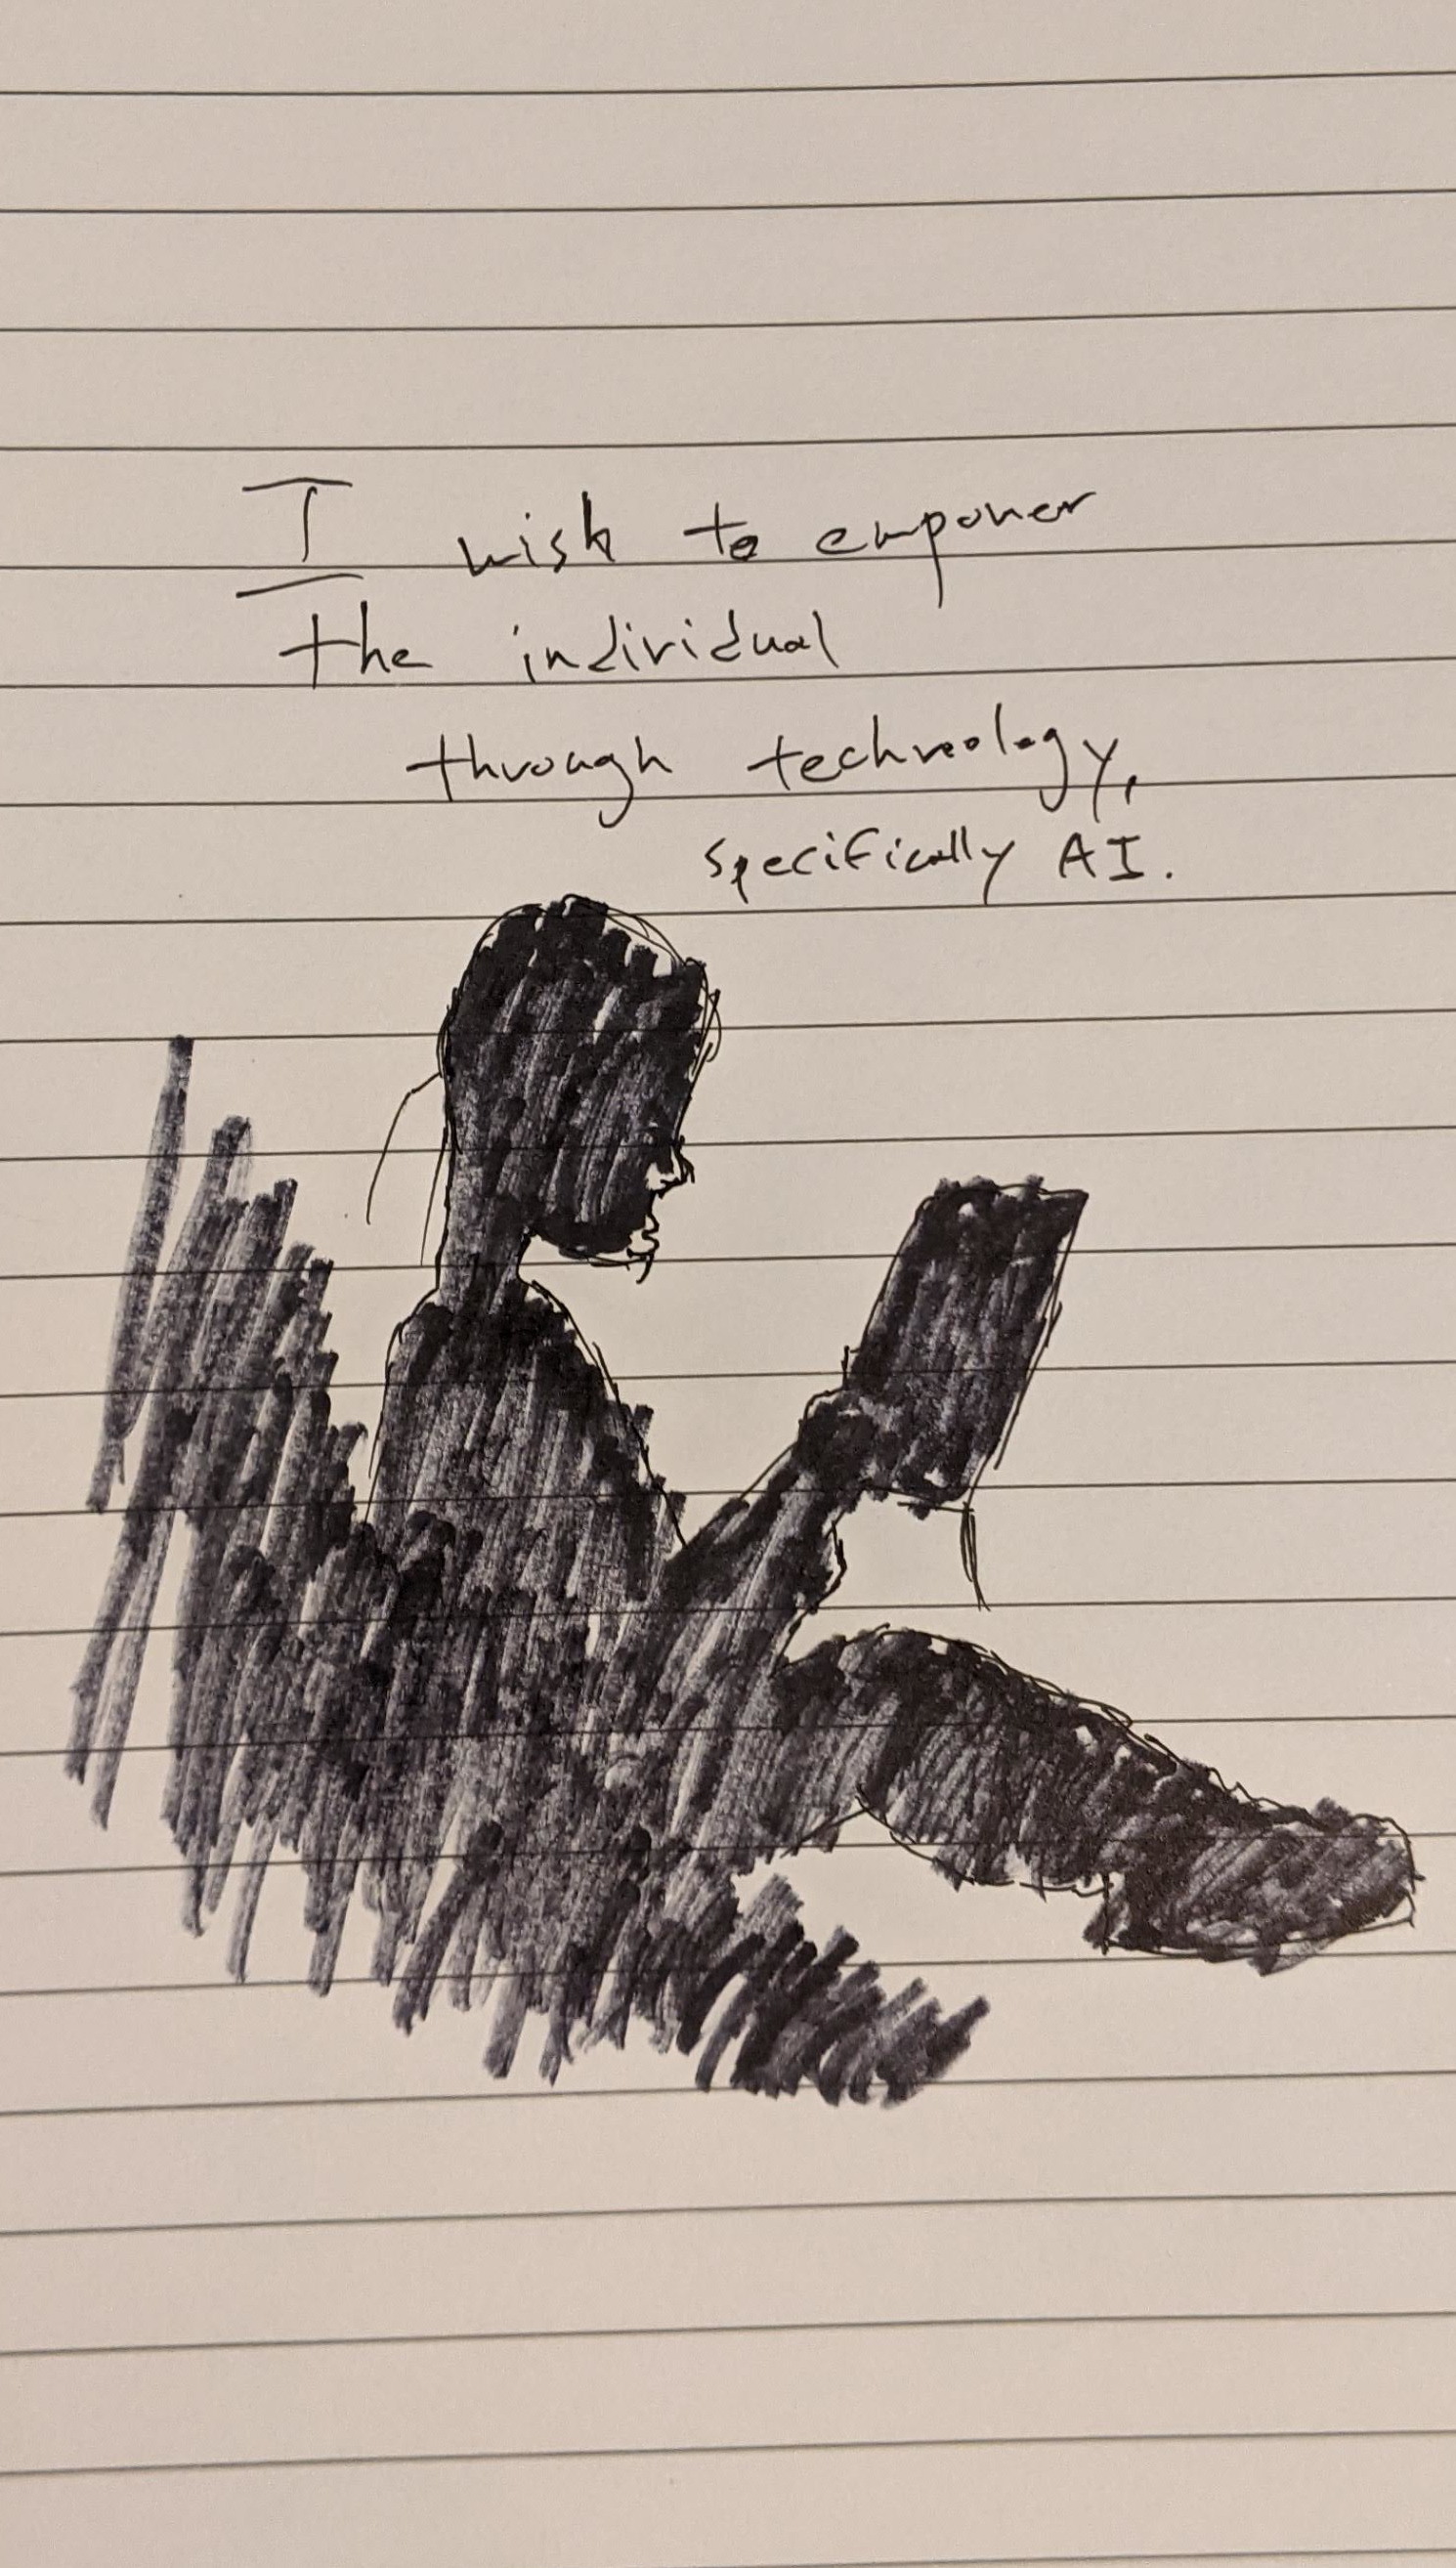 I wish to empower
the individual
through technology,
specifically AI.